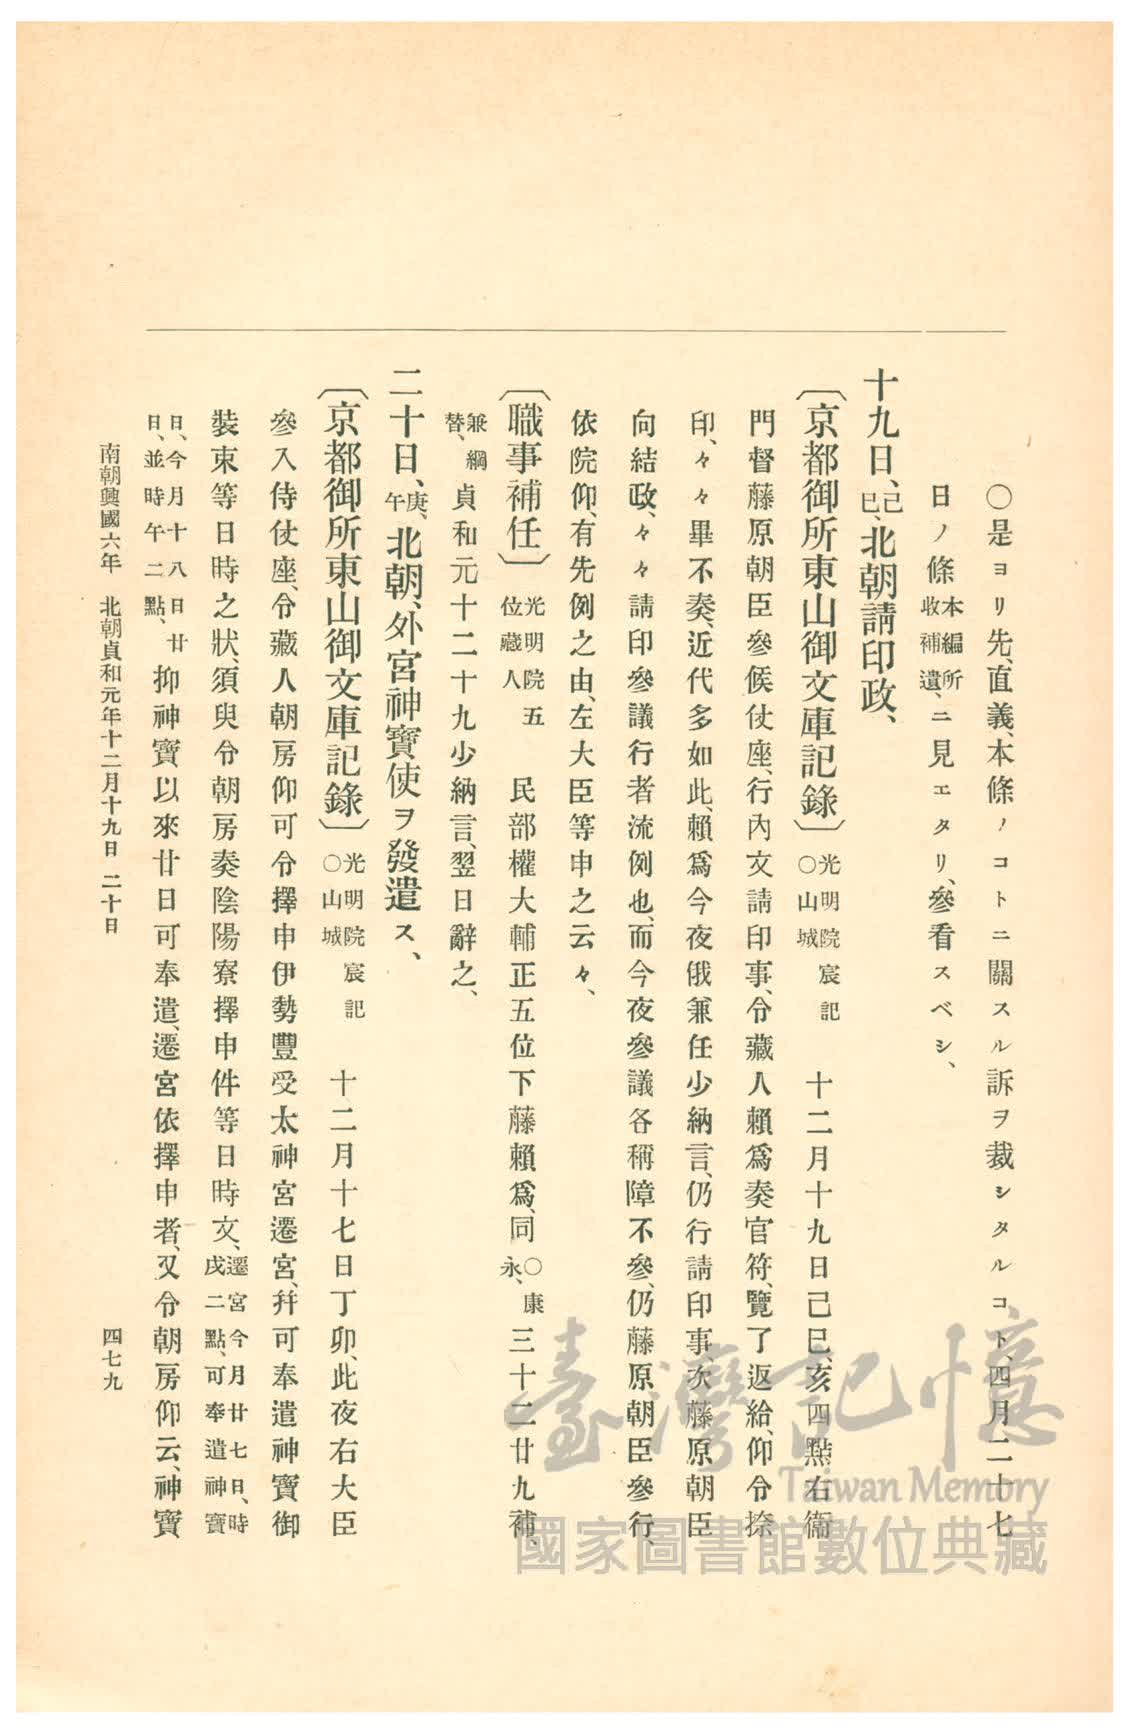 ○是ヨリ先、直義、本條ノコトニ關スル訴ヲ裁シタルコト、四月二十七
日ノ條本編所收補遺、ニ見エタリ、參看スベシ、
十九日、己巳、北朝請印政、
〔京都御所東山御文庫記錄〕光明院宸記○山城 十二月十九日己巳、亥四點右衞
門督藤原朝臣參候仗座、行內文請印事、令藏人賴爲奏官符、覽了返給、仰令捺
印、々々畢不奏、近代多如此、賴爲今夜俄兼任少納言、仍行請印事、次藤原朝臣
向結政、々々請印參議行者流例也、而今夜參議各稱障不參、仍藤原朝臣參行、
依院仰、有先例之由、左大臣等申之云々、
〔職事補任〕光明院五位藏人 民部權大輔正五位下藤賴爲、同○康永、三十二廿九補、
兼綱替、貞和元十二十九少納言、翌日辭之、
二十日、庚午、北朝、外宮神寶使ヲ發遣ス、
〔京都御所東山御文庫記錄〕光明院宸記○山城 十二月十七日丁卯、此夜右大臣
參入侍仗座、令藏人朝房仰可令擇申伊勢豐受太神宮遷宮、幷可奉遣神寶御
裝束等日時之狀、須臾令朝房奏陰陽寮擇申件等日時文、遷宮今月廿七日、時戌二點、可奉遣神寶
日、今月十八日廿日、並時午二點、抑神寶以來廿日可奉遣、遷宮依擇申者、又令朝房仰云、神寶
南朝興國六年 北朝貞和元年十二月十九日 二十日
四七九
臺灣記憶
Taiwan Memory
國家圖書館數位典藏